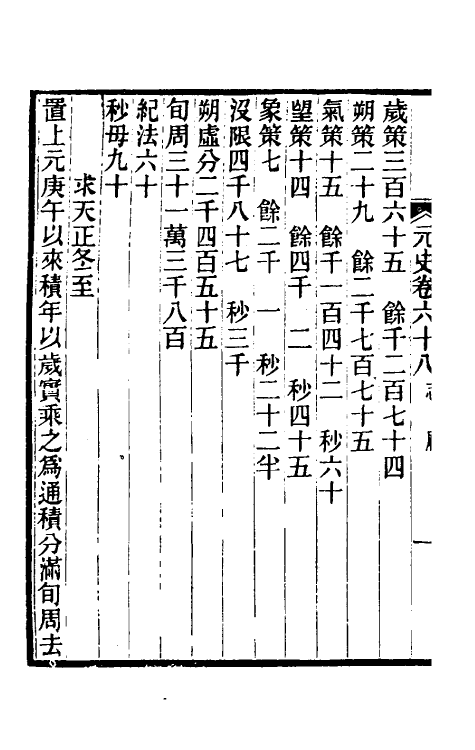 元史卷六十八 志 一
歲策三百六十五 餘千二百七十四
朔策二十九 餘二千七百七十五
氣策十五 餘千一百四十二 秒六十
望策十四 餘四千 二 秒四十五
象策七 餘二千 一 秒二十二半
沒限四千八十七 秒三千
朔虛分二千四百五十五
旬周三十一萬三千八百
紀法六十
秒母九十
求天正冬至
置上元庚午以來積年以歲實乘之爲通積分滿旬周去